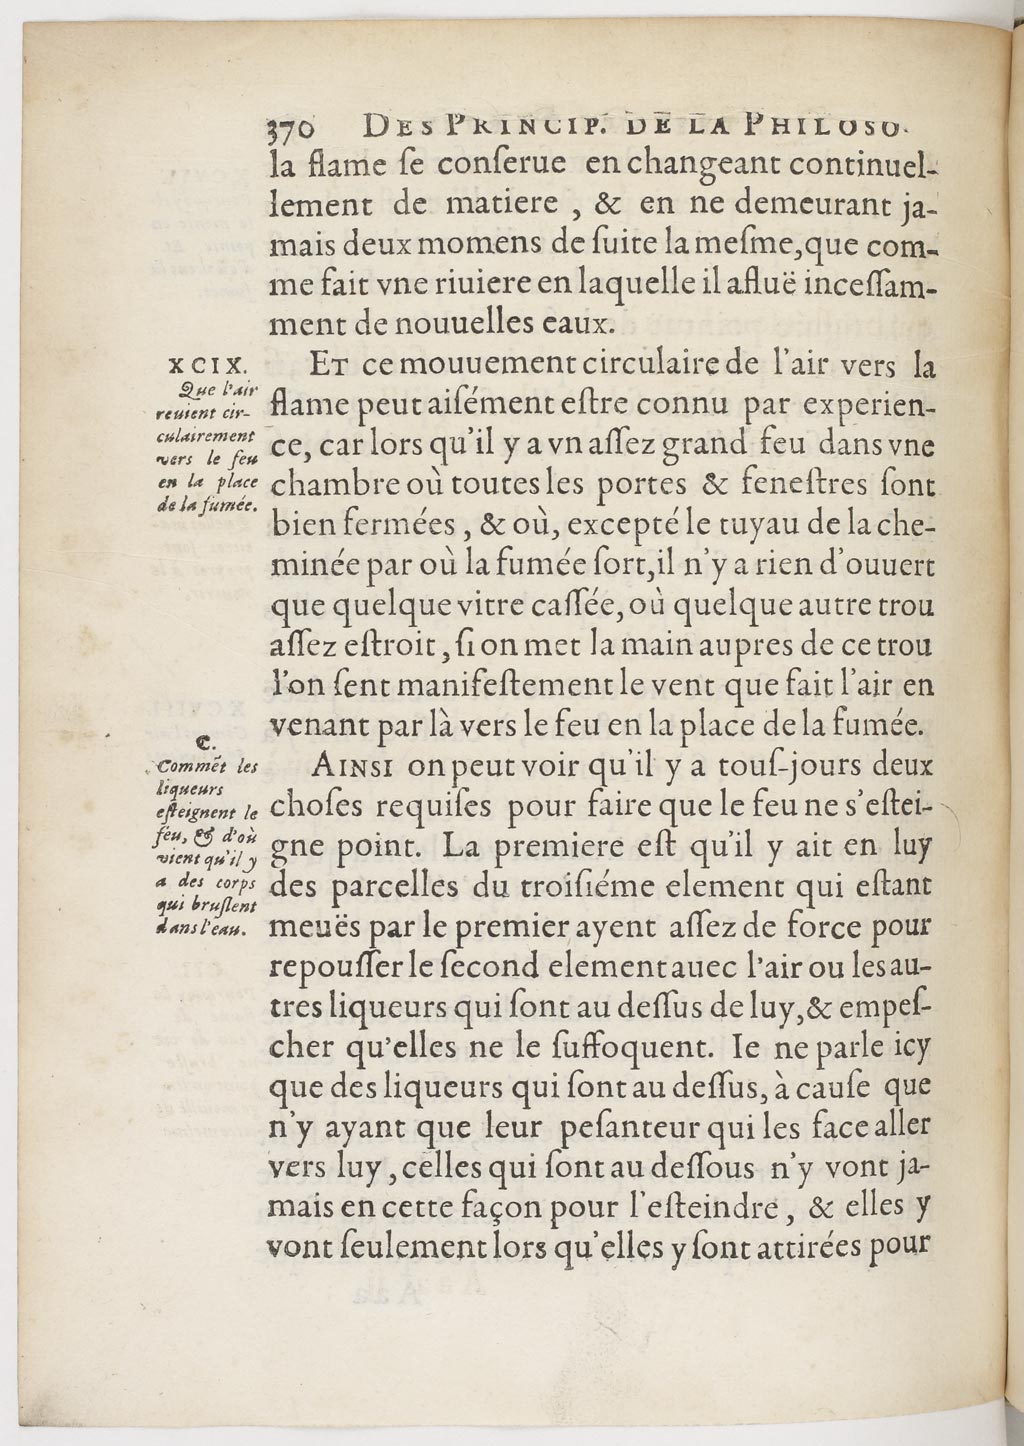 370 DES PRINCIP. DE LA PHILOSO.
la flame ſe conſerue en changeant continuel-
lement de matiere , & en ne demeurant ja-
mais deux momens de ſuite la meſme, que com-
me fait vne riuiere en laquelle il afluë inceſſam-
ment de nouuelles eaux.
XCIX.
Que l'air
reuient cir-
culairement
vers le feu
en la place
de la fumée.
ET ce mouuement circulaire de l'air vers la
flame peut aiſément eſtre connu par experien-
ce, car lors qu'il y a vn aſſez grand feu dans vne
chambre où toutes les portes & feneſtres ſont
bien fermées , & où, excepté le tuyau de la che-
minée par où la fumée ſort, il n'y a rien d'ouuert
que quelque vitre caſſée, où quelque autre trou
aſſez eſtroit , ſi on met la main aupres de ce trou
l'on ſent manifeſtement le vent que fait l'air en
venant par là vers le feu en la place de la fumée.
C.
Commẽt les
liqueurs
eſteignent le
feu, & d'où
vient qu'il y
a des corps
qui bruſlent
dans l'eau.
AINSI on peut voir qu'il y a touſ-jours deux
choſes requiſes pour faire que le feu ne s'eſtei-
gne point. La premiere eſt qu'il y ait en luy
des parcelles du troiſiéme element qui eſtant
meuës par le premier ayent aſſez de force pour
repouſſer le ſecond element auec l'air ou les au-
tres liqueurs qui ſont au deſſus de luy, & empeſ-
cher qu'elles ne le ſuffoquent. Ie ne parle icy
que des liqueurs qui ſont au deſſus, à cauſe que
n'y ayant que leur peſanteur qui les face aller
vers luy , celles qui ſont au deſſous n'y vont ja-
mais en cette façon pour l'eſteindre , & elles y
vont ſeulement lors qu'elles y ſont attirées pour